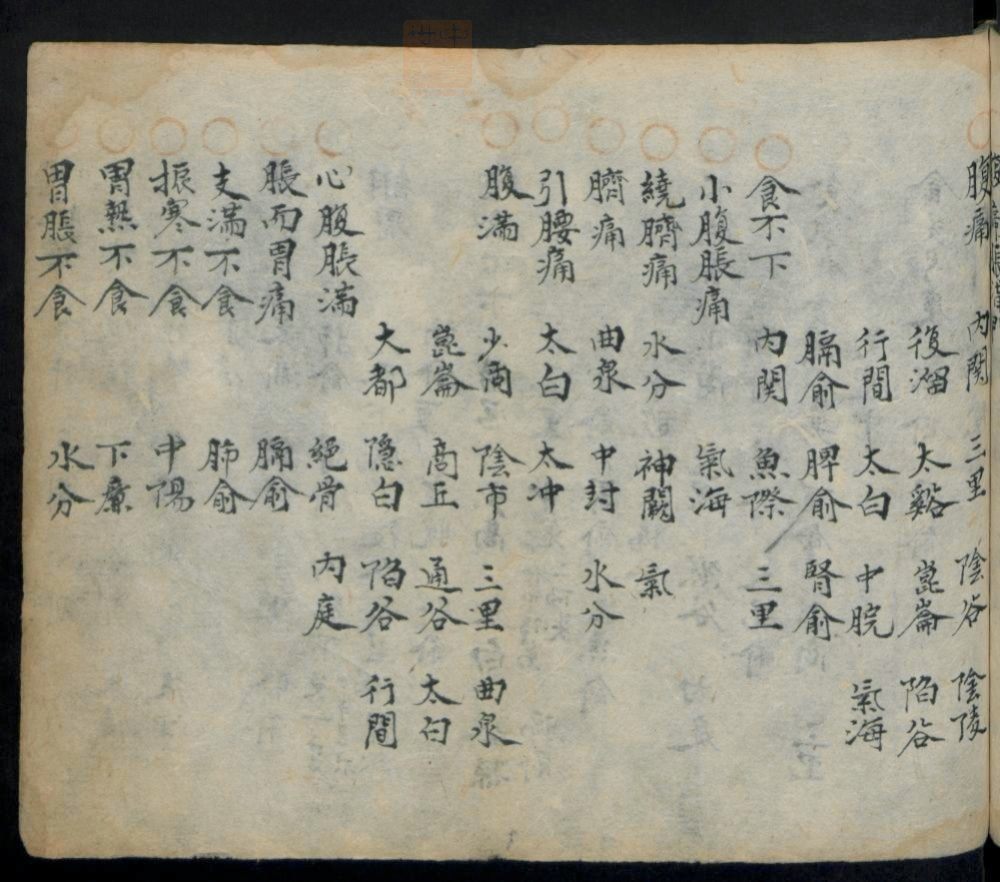 腹痛 内関 三里 陰谷 陰陵
復溜 太谿 崑崙 陷谷
行間 太白 中脘 氣海
膈俞 脾俞 腎俞
食不下 内関 魚際 三里
小腹脹痛 氣海
繞臍痛 水分 神闕 氣
臍痛 曲泉 中封 水分
引腰痛 太白 太冲
腹满 少商 陰市 三里 曲泉
崑崙 商丘 通谷 太白
大都 隐白 陷谷 行間
心腹脹滿 絕骨 内庭
脹而胃痛 膈俞
支满不食 肺俞
振寒不食 中陽
胃熱不食 下廉
胃脹不食 水分